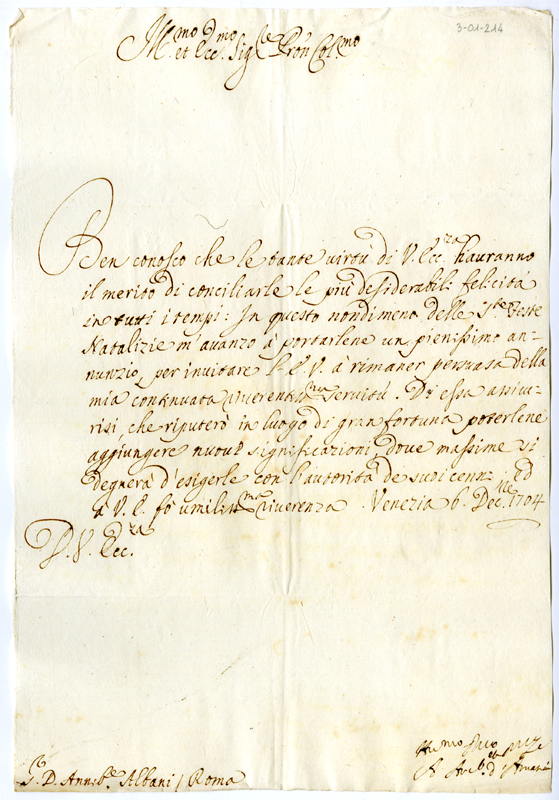 3-01-214
Ill.mo et Ecc.mo Sig.re Pron Col.mo
Ben conosco che le tante virtù di V. Ecc.za hauranno
il merito di conciliarle le più desiderabili felicità
in tutti i tempi: In questo nondimeno delle S.te Feste
Natalizie m'auanzo à portarlene un pienissimo an-
nunzio, per inuitare l'E.V. à rimaner persuasa della
mia continuata riuerentis.ma seruitù. Di essa assicu-
risi che riputerò in luogo di gran fortuna poterlene
aggiungere nuoue significazioni, doue massime si
degnerà d'esigerle con l'autorità de suoi cenni. Ed
à V.E. fò umiliss.ma riuerenza. Venezia 6. Dec.bre 1704
D. V. Ecc.za
S.r D. Annib.e Albani / Roma